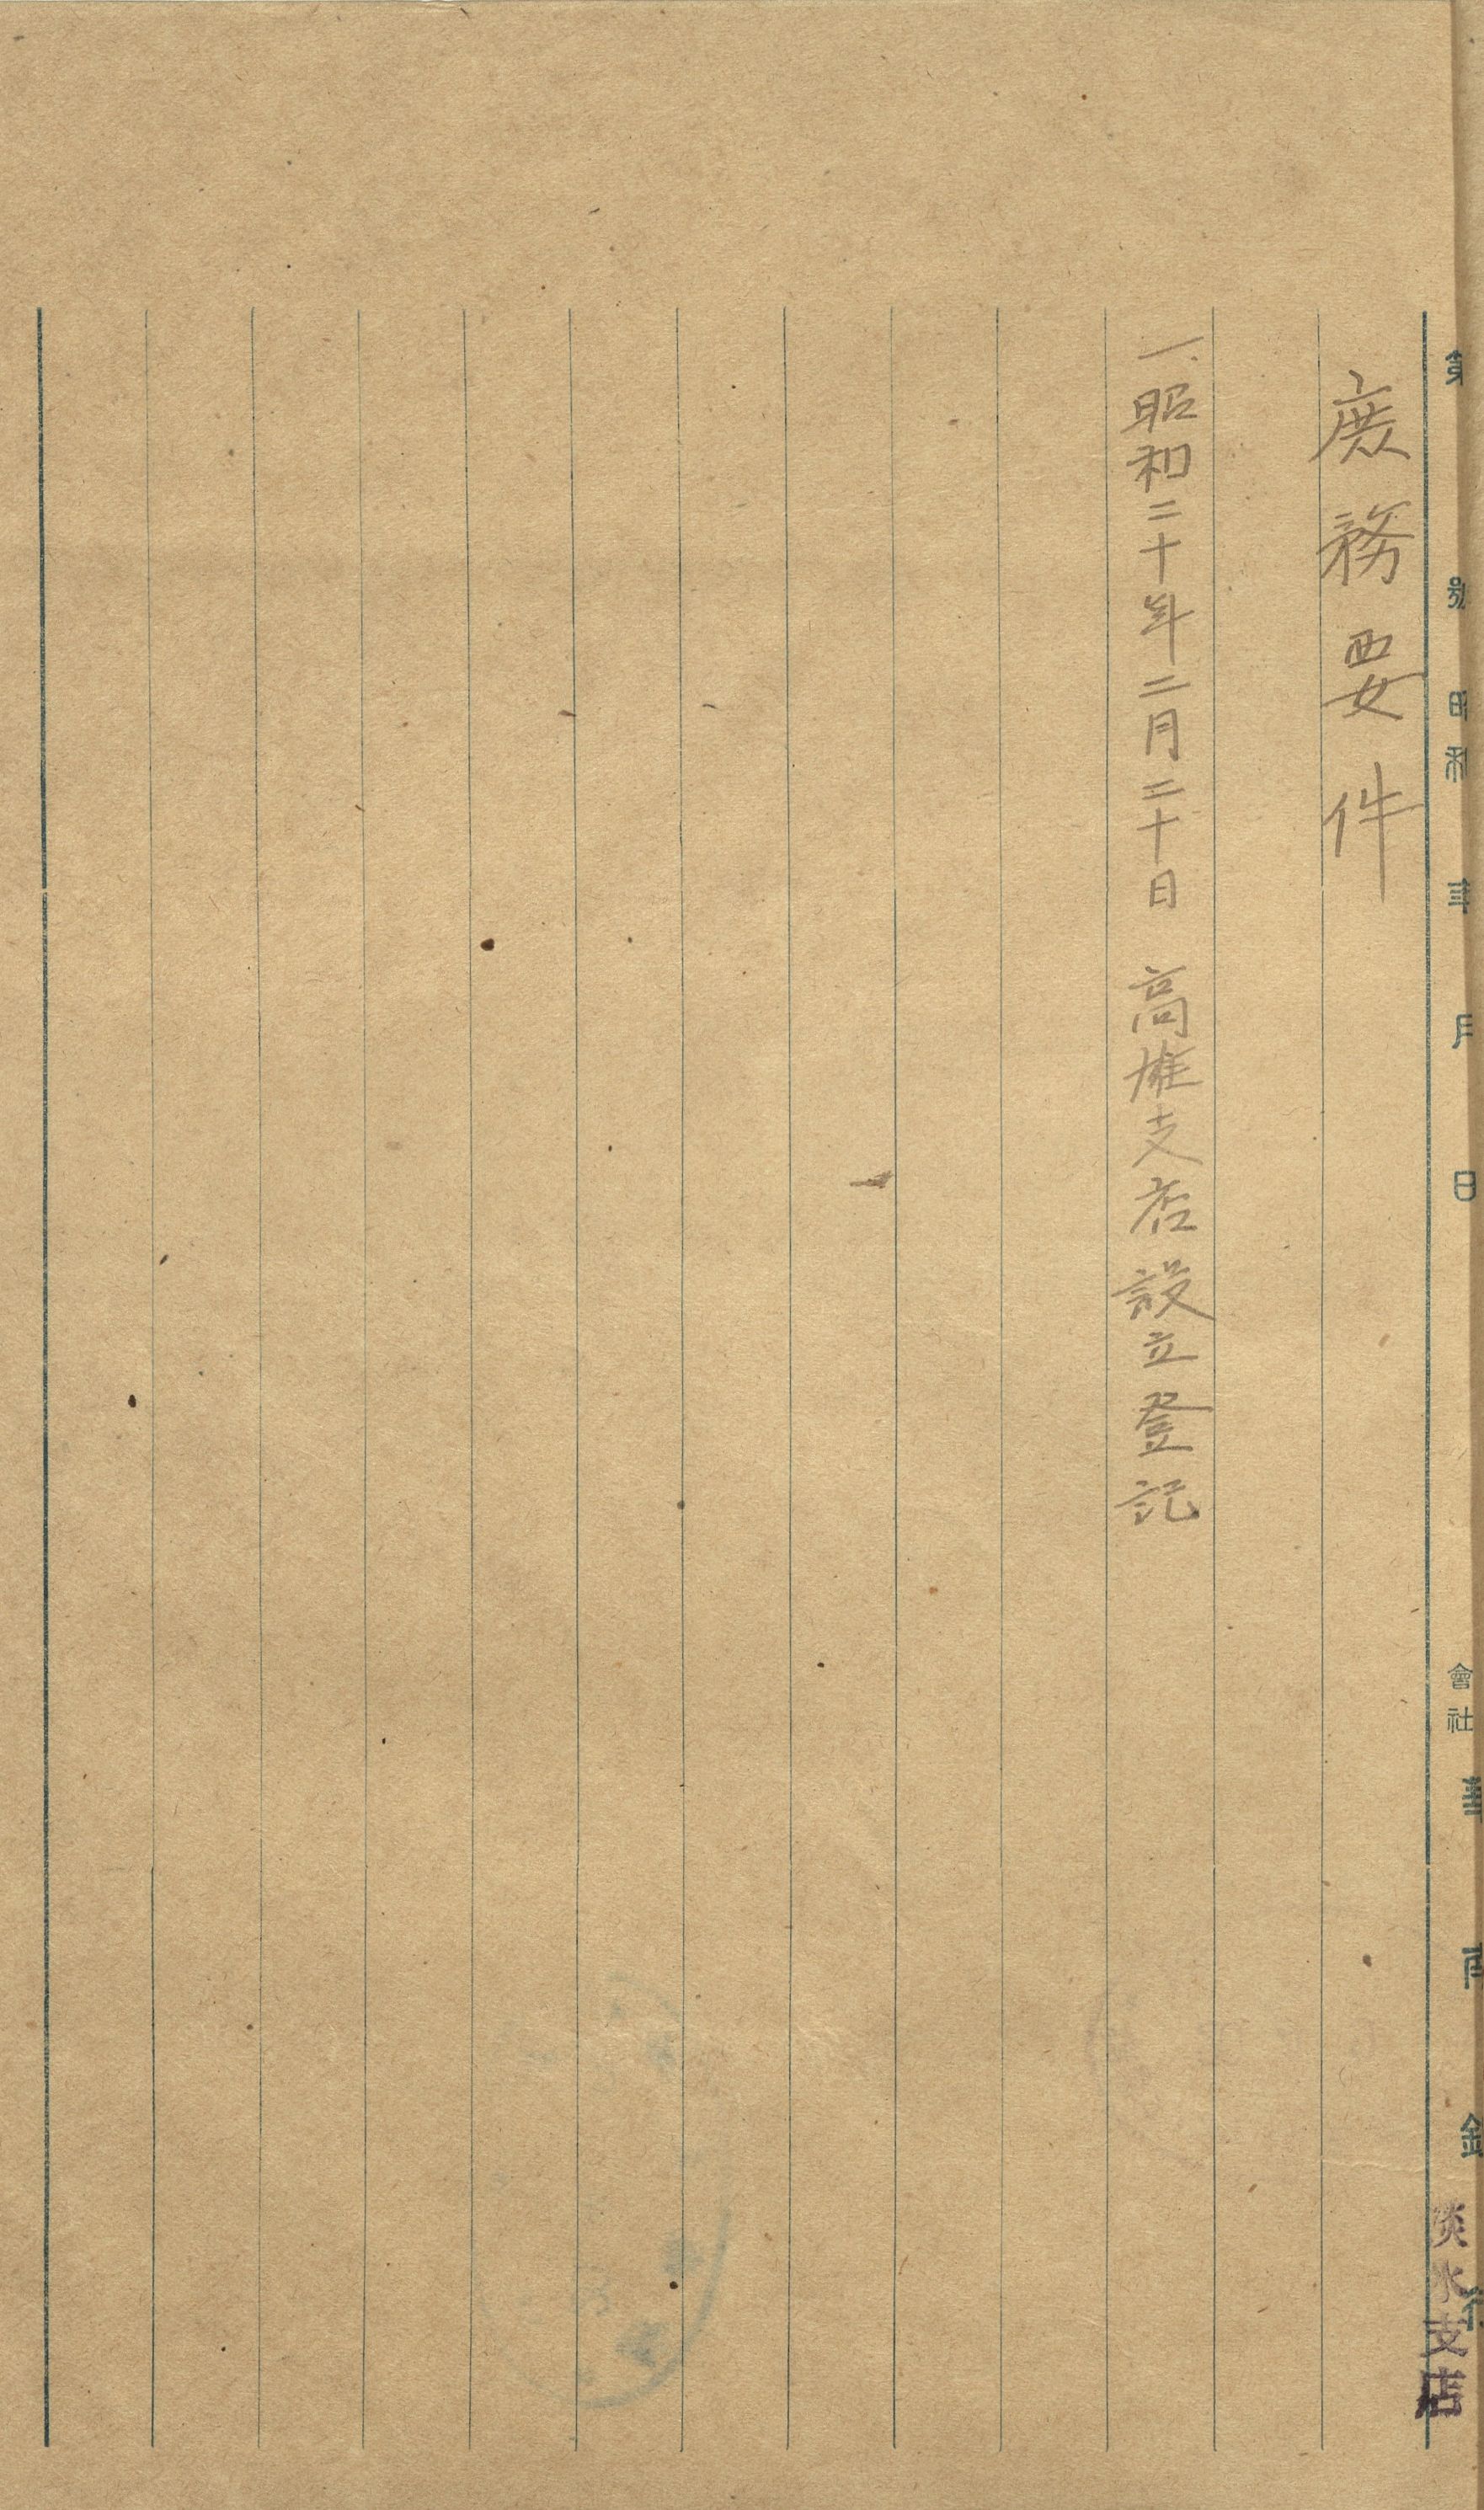 第 號 昭和 年 月 日 會社 華南銀行
淡水支店
庶務要件
一、昭和二十年二月二十日 高雄支店設立登記